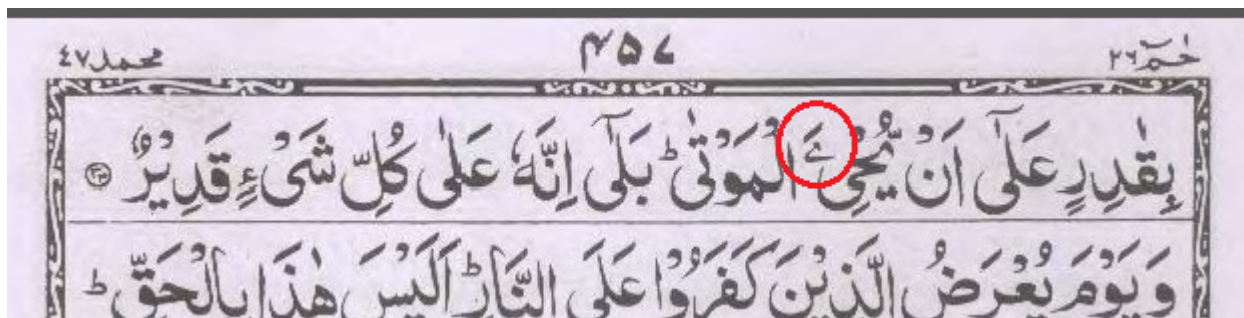 حٰمٓ ٢٦ ۴۵۷ محمد ٤٧
بِقٰدِرٍ عَلٰٓى اَنْ يُّحْیِۦَ الْمَوْتٰى ؕ بَلٰٓى اِنَّهٗ عَلٰى كُلِّ شَیْءٍ قَدِيْرٌ ﴿۳۳﴾
وَ يَوْمَ يُعْرَضُ الَّذِيْنَ كَفَرُوْا عَلَى النَّارِ ؕ اَلَيْسَ هٰذَا بِالْحَقِّ ؕ